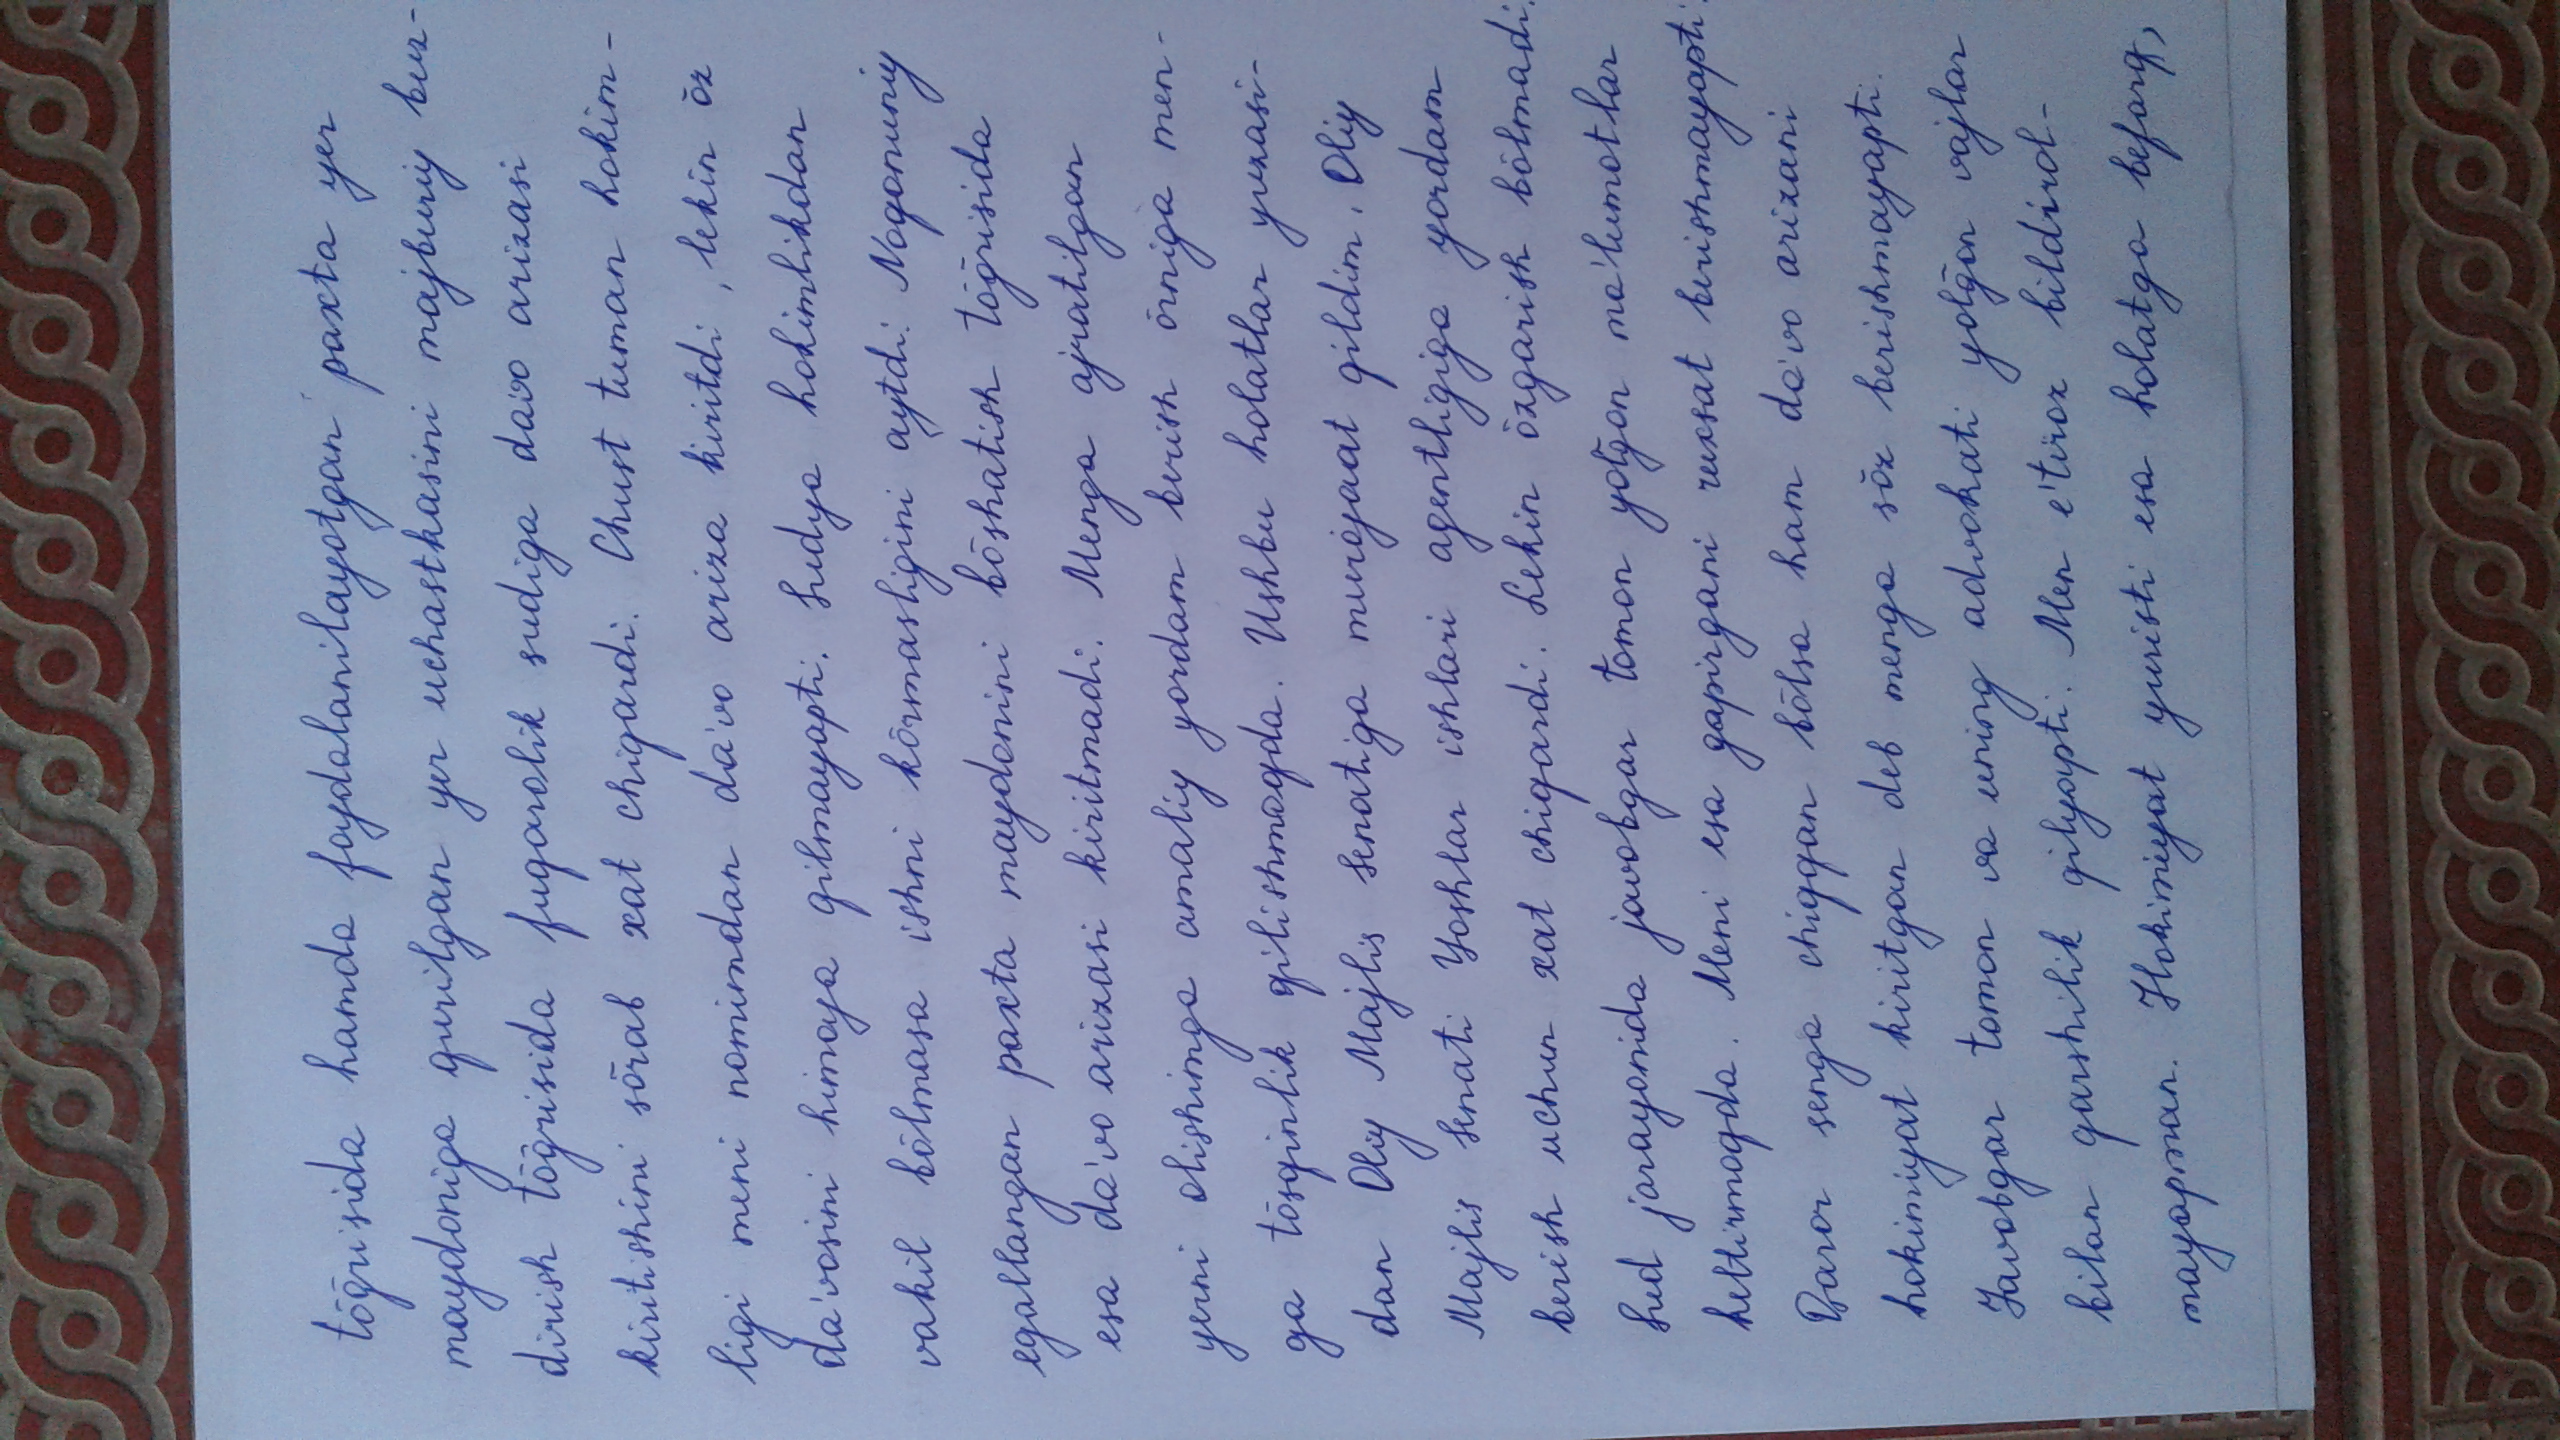 tōḡrisida hamda foydalanilayotgan paxta yer
maydoniga qurilgan yer uchastkasini majburiy buz-
dirish tōḡrisida fuqarolik sudiga da'vo arizasi
kiritishini sōrab xat chiqardi. Chust tuman hokim-
ligi meni nomimdan da'vo ariza kiritdi, lekin ōz
da'vosini himoya qilmayapti. Sudya hokimlikdan
vakil bōlmasa ishni kōrmasligini aytdi. Noqonuniy
egallangan paxta maydonini bōshatish tōḡrisida
esa da'vo arizasi kiritmadi. Menga ajratilgan
yerni olishimga amaliy yordam berish ōrniga men-
ga tōsqinlik qilishmoqda. Ushbu holatlar yuzasi-
dan Oliy Majlis Senatiga murojaat qildim. Oliy
Majlis Senati Yoshlar ishlari agentligiga yordam
berish uchun xat chiqardi. Lekin ōzgarish bōlmadi.
Sud jarayonida javobgar tomon yolḡon ma'lumotlar
keltirmoqda. Meni esa gapirgani ruxsat berishmayapti.
Qaror senga chiqqan bōlsa ham da'vo arizani
hokimiyat kiritgan deb menga sōz berishmayapti.
Javobgar tomon va uning advokati yolḡon vajlar
bilan qarshilik qilyapti. Men e'tiroz bildirol-
mayapman. Hokimiyat yuristi esa holatga befarq,